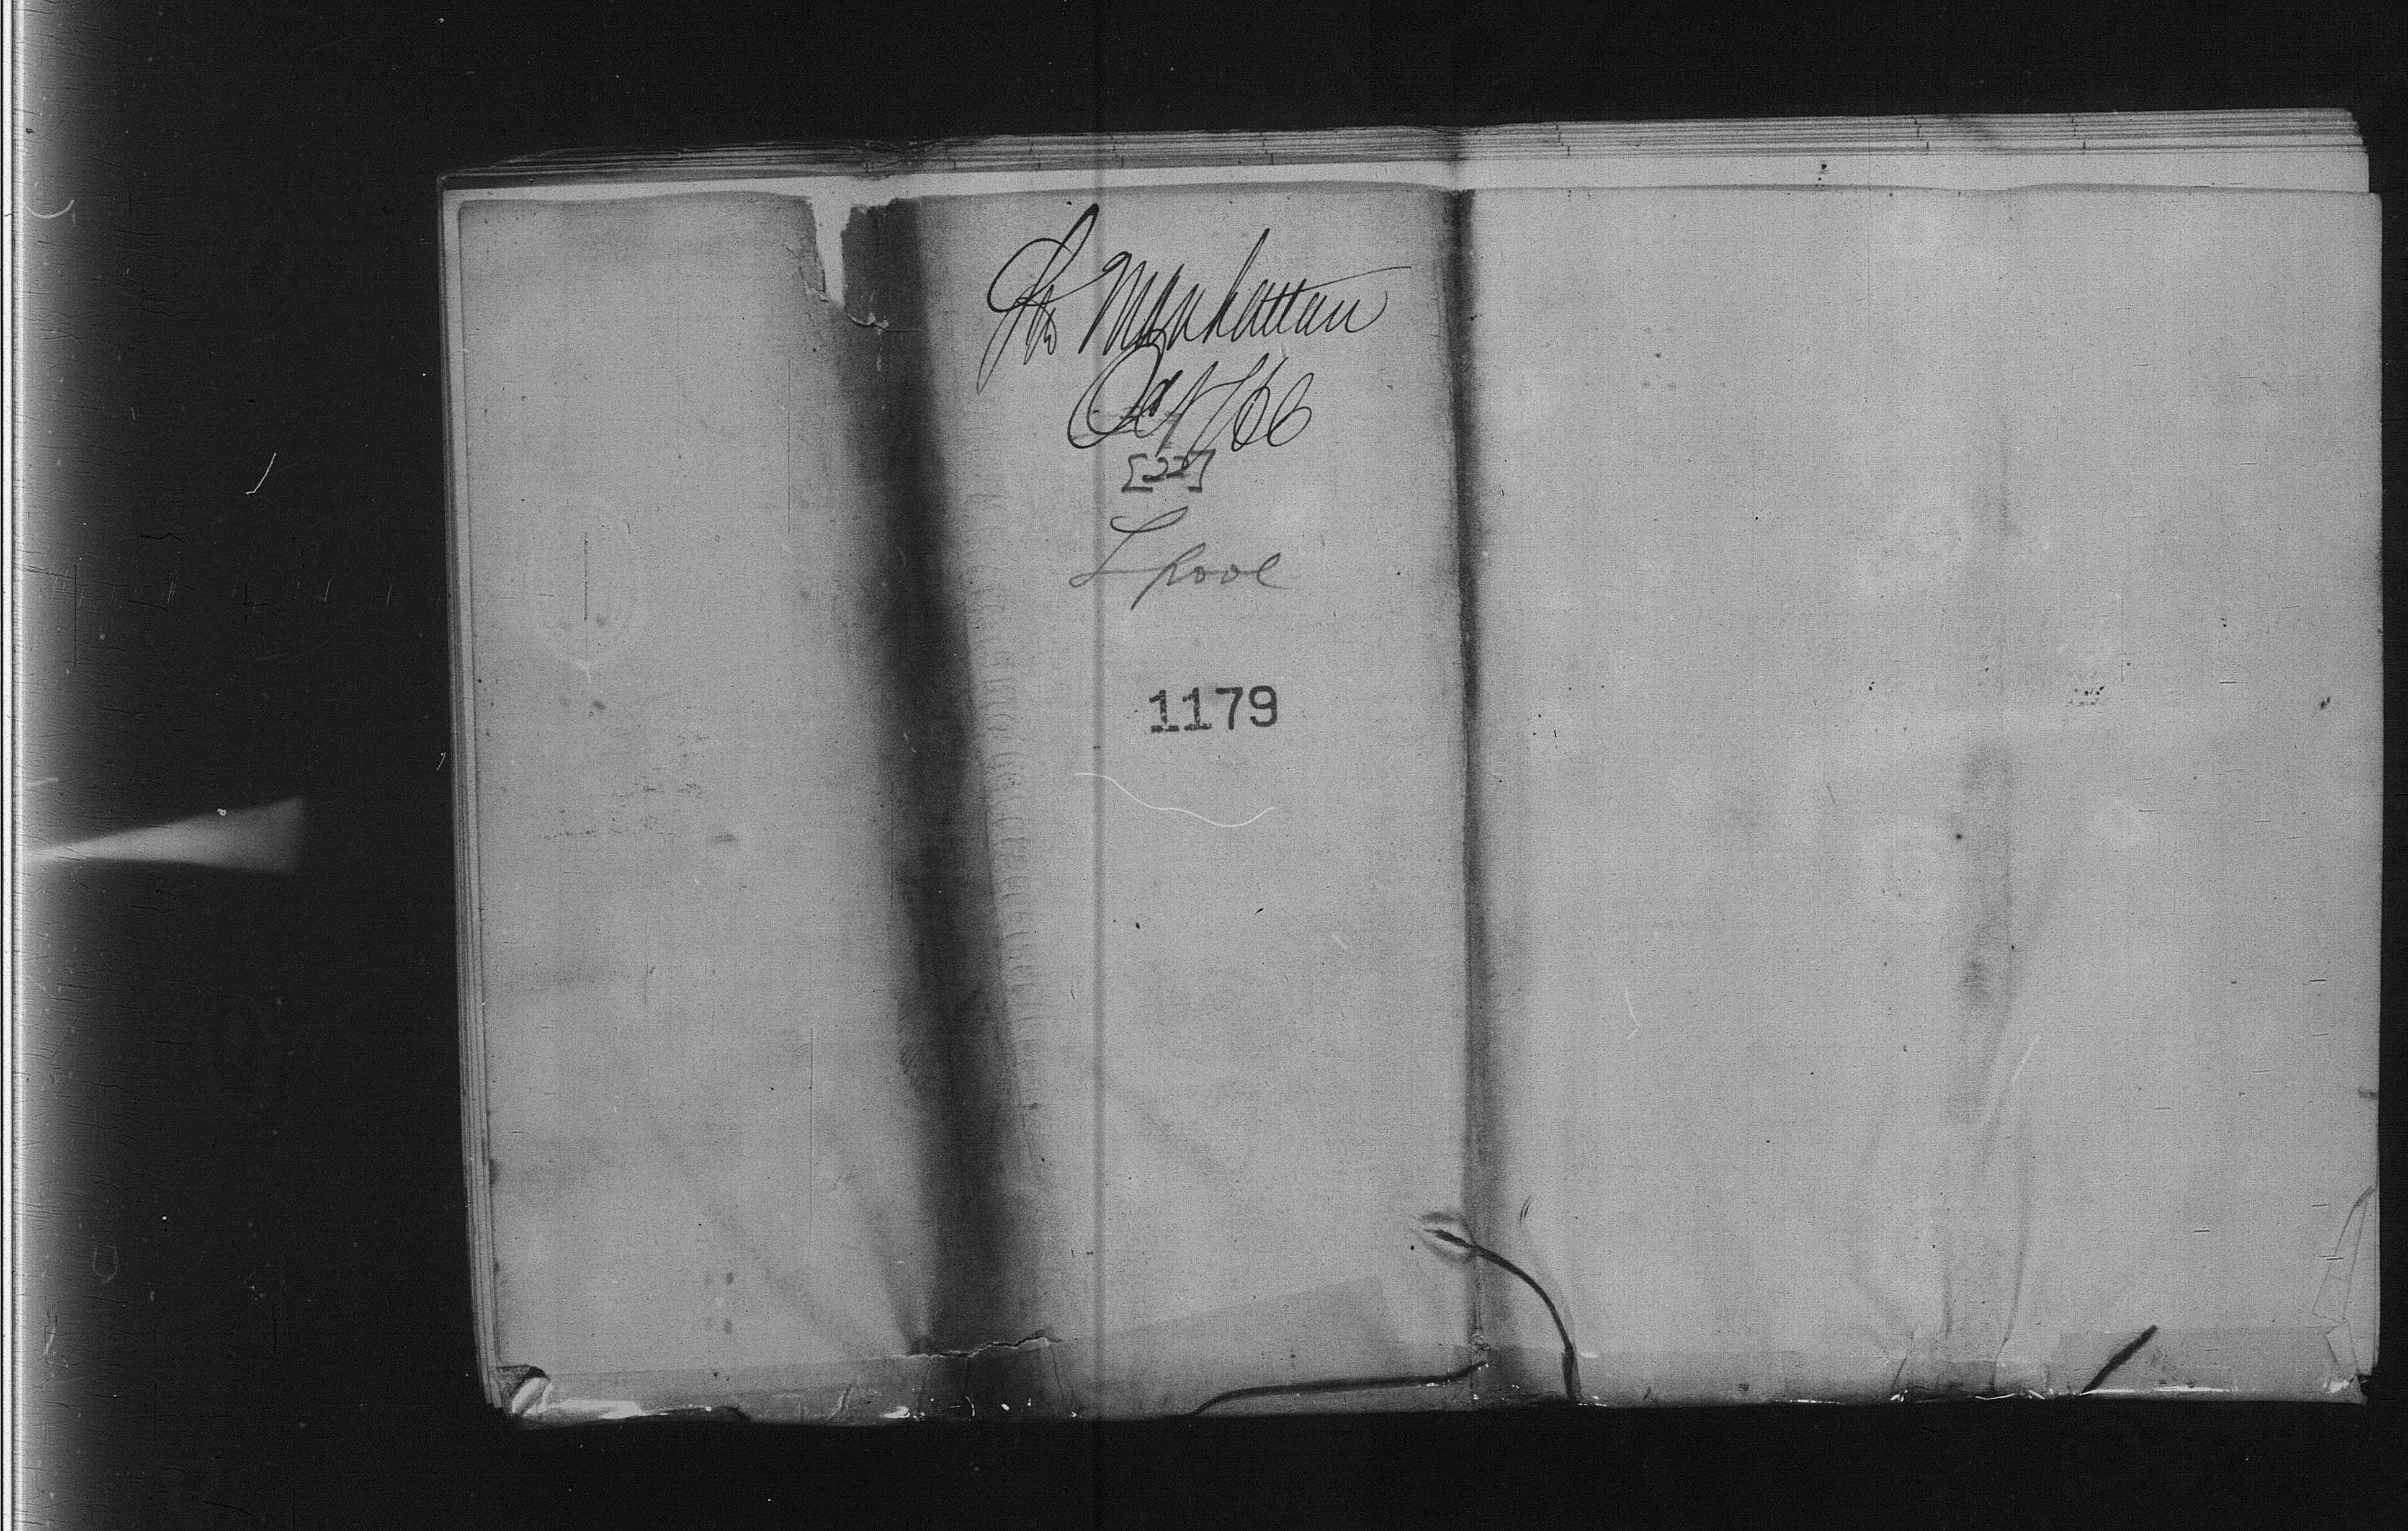 Sh Manhattan
Oct /66
[22]
Lpool
1179